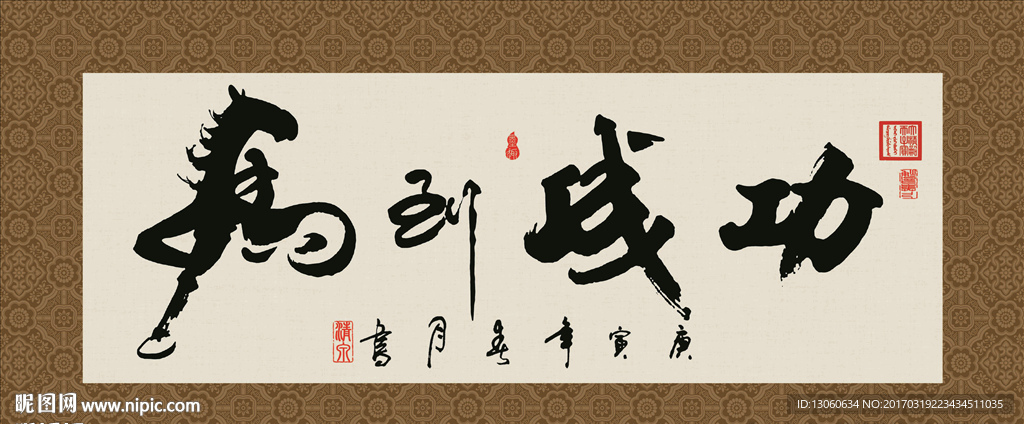 馬到成功
庚寅年春月書
清泉
昵图网 www.nipic.com
ID:13060634 NO:20170319223434511035